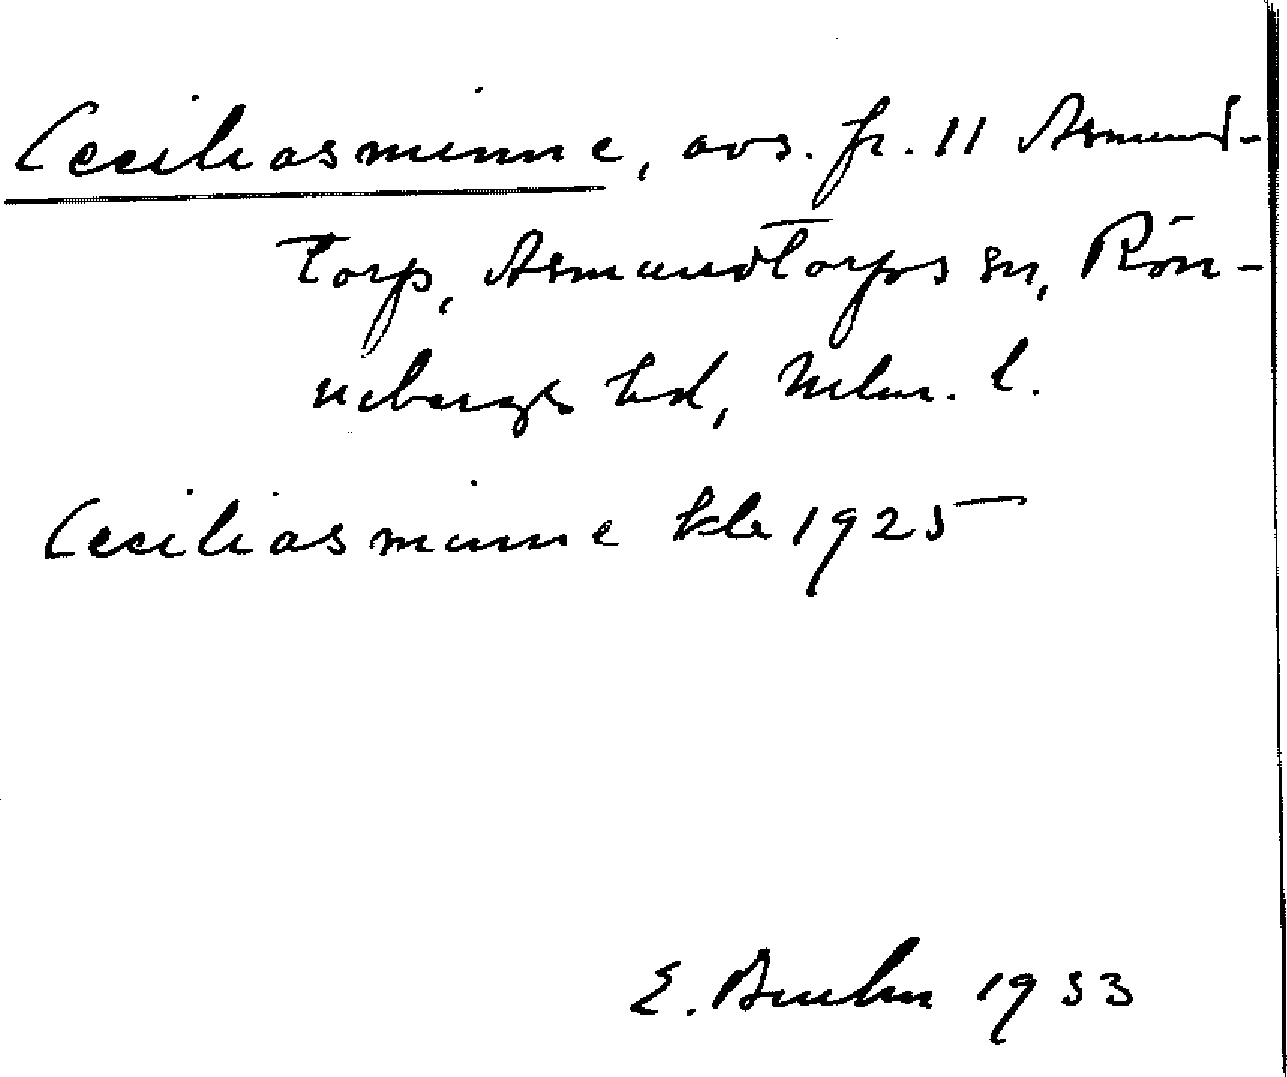 Ceciliasminne, avs. fr. 11 Asmund-
torp, Asmundtorps sn, Rön-
nebergs hd, Mlm. l.
Ceciliasminne kle 1925
E. Bruhn 1933